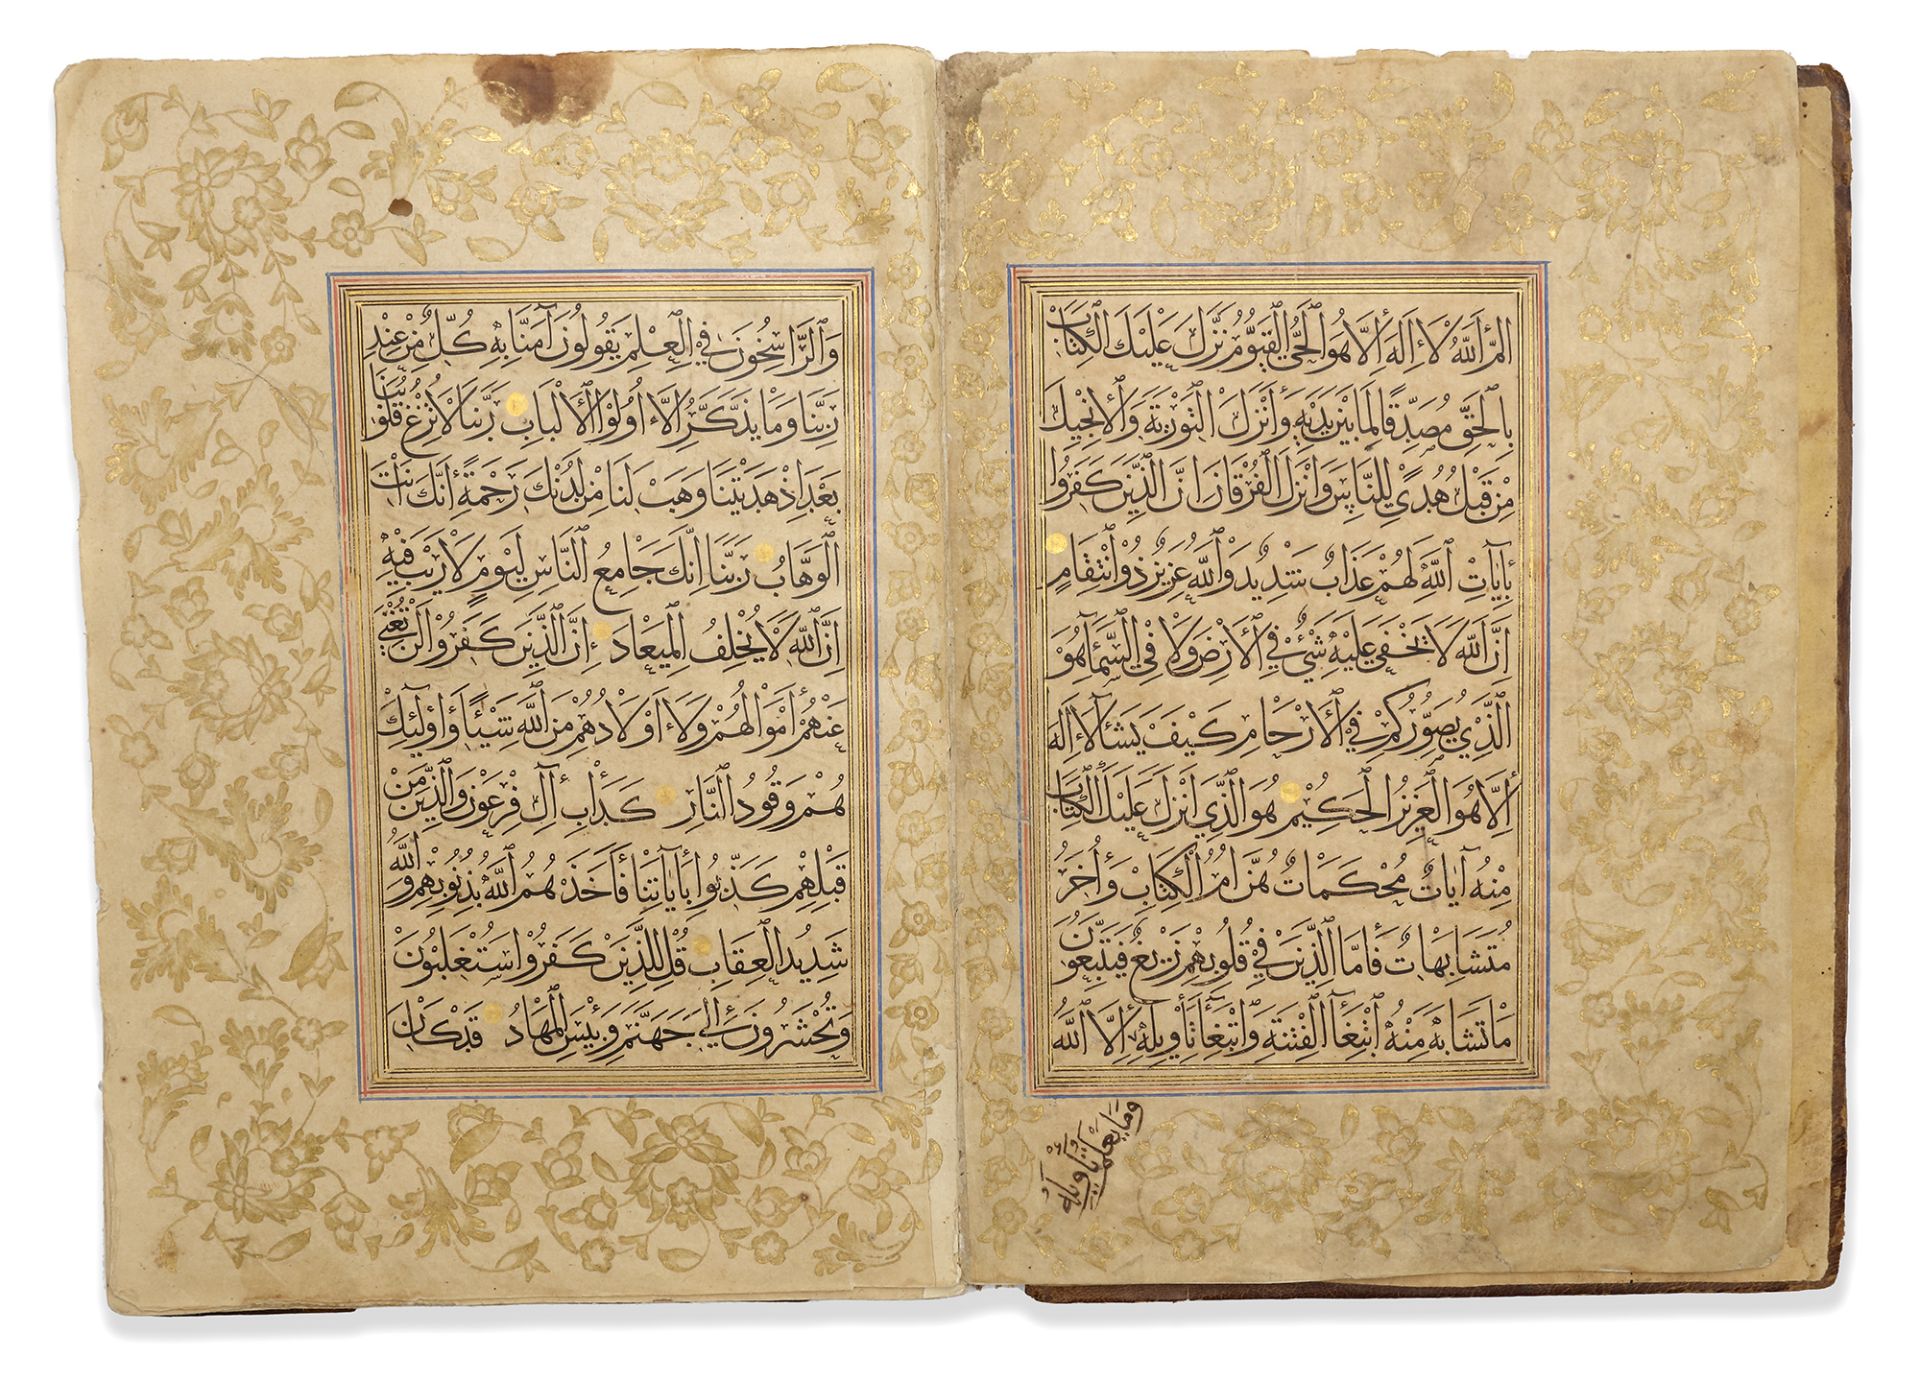 الم اَللّٰهُ لَا اِلٰهَ اِلَّا هُوَ الْحَيُّ الْقَيُّومُ نَزَّلَ عَلَيْكَ الْكِتَابَ
بِالْحَقِّ مُصَدِّقًا لِمَا بَيْنَ يَدَيْهِ وَاَنْزَلَ التَّوْرٰيةَ وَالْاِنْجِيلَ
مِنْ قَبْلُ هُدًى لِلنَّاسِ وَاَنْزَلَ الْفُرْقَانَ اِنَّ الَّذِينَ كَفَرُوا
بِاٰيَاتِ اللّٰهِ لَهُمْ عَذَابٌ شَدِيدٌ وَاللّٰهُ عَزِيزٌ ذُو انْتِقَامٍ
اِنَّ اللّٰهَ لَا يَخْفٰى عَلَيْهِ شَيْءٌ فِي الْاَرْضِ وَلَا فِي السَّمَاۤءِ هُوَ
الَّذِي يُصَوِّرُكُمْ فِي الْاَرْحَامِ كَيْفَ يَشَاۤءُ لَا اِلٰهَ
اِلَّا هُوَ الْعَزِيزُ الْحَكِيمُ هُوَ الَّذِي اَنْزَلَ عَلَيْكَ الْكِتَابَ
مِنْهُ اٰيَاتٌ مُحْكَمَاتٌ هُنَّ اُمُّ الْكِتَابِ وَاُخَرُ
مُتَشَابِهَاتٌ فَاَمَّا الَّذِينَ فِي قُلُوبِهِمْ زَيْغٌ فَيَتَّبِعُونَ
مَا تَشَابَهَ مِنْهُ ابْتِغَاۤءَ الْفِتْنَةِ وَابْتِغَاۤءَ تَأْوِيلِهِ اِلَّا اللّٰهُ
وَمَا يَعْلَمُ تَأْوِيلَهُ
وَالرَّاسِخُونَ فِي الْعِلْمِ يَقُولُونَ اٰمَنَّا بِهِ كُلٌّ مِنْ عِنْدِ
رَبِّنَا وَمَا يَذَّكَّرُ اِلَّا اُولُوا الْاَلْبَابِ رَبَّنَا لَا تُزِغْ قُلُوبَنَا
بَعْدَ اِذْ هَدَيْتَنَا وَهَبْ لَنَا مِنْ لَدُنْكَ رَحْمَةً اِنَّكَ اَنْتَ
الْوَهَّابُ رَبَّنَا اِنَّكَ جَامِعُ النَّاسِ لِيَوْمٍ لَا رَيْبَ فِيهِ
اِنَّ اللّٰهَ لَا يُخْلِفُ الْمِيعَادَ اِنَّ الَّذِينَ كَفَرُوا لَنْ تُغْنِيَ
عَنْهُمْ اَمْوَالُهُمْ وَلَا اَوْلَادُهُمْ مِنَ اللّٰهِ شَيْئًا وَاُولٰئِكَ
هُمْ وَقُودُ النَّارِ كَدَأْبِ اٰلِ فِرْعَوْنَ وَالَّذِينَ مِنْ
قَبْلِهِمْ كَذَّبُوا بِاٰيَاتِنَا فَاَخَذَهُمُ اللّٰهُ بِذُنُوبِهِمْ وَاللّٰهُ
شَدِيدُ الْعِقَابِ قُلْ لِلَّذِينَ كَفَرُوا سَتُغْلَبُونَ
وَتُحْشَرُونَ اِلٰى جَهَنَّمَ وَبِئْسَ الْمِهَادُ قَدْ كَانَ